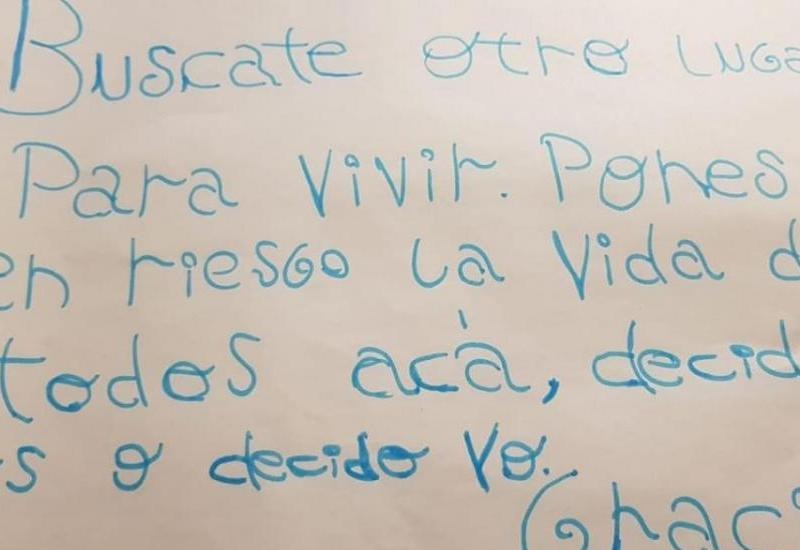 Buscate otro Luga
Para Vivir. Pones
en riesgo la vida d
todos acá, decid
s o decido yo.
Grac